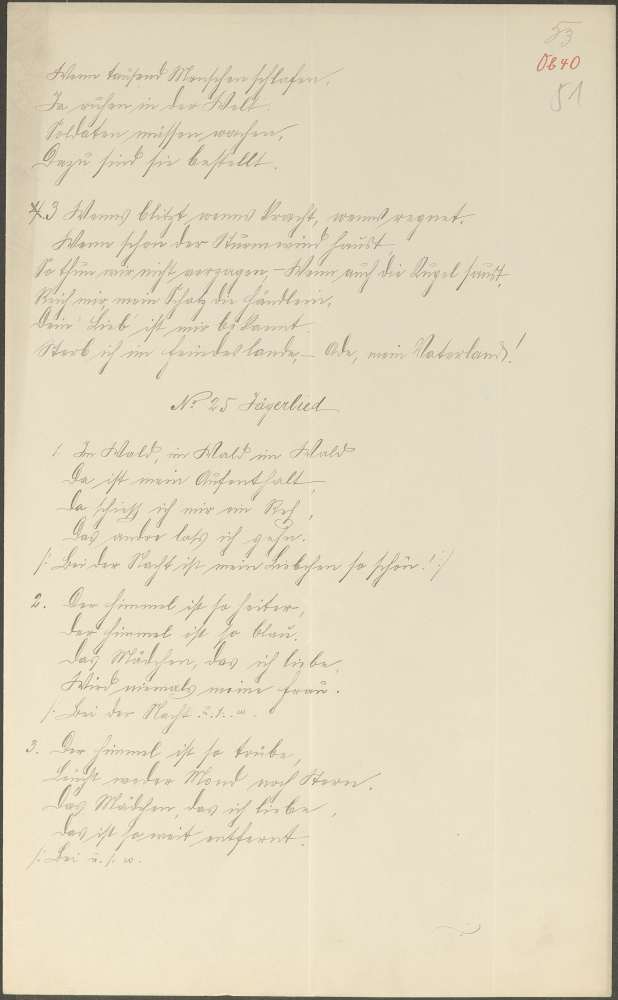 53
Ob 40
51
Wenn tausend Menschen schlafen,
Ja ruhen in der Welt.
Soldaten müssen wachen,
Dazu sind sie bestellt.
3 Wenns blitzt, wenns kracht, wenns regnet.
Wenn schon der Sturmwind haust,
So thun wir nicht verzagen, – Wenn auch die Kugel saust,
Reich mir, mein Schatz die Händlein,
Dein Lieb' ist mir bekannt
Sterb ich im Feindeslande, – Ade, mein Vaterland!
No 25 Jägerlied
1 Im Wald, im Wald im Wald
Da ist mein Aufenthalt,
Da schieß ich mir ein Reh,
Das andre lass ich gehn.
/: Bei der Nacht ist mein Liebchen so schön! :/
2. Der Himmel ist so heiter,
Der Himmel ist so blau.
Das Mädchen, das ich liebe,
Wird niemals meine Frau.
/: Bei der Nacht u. s. w.
3. Der Himmel ist so trübe,
Leucht weder Mond noch Stern.
Das Mädchen, das ich liebe,
Das ist so weit entfernt.
/: Bei u. s. w.